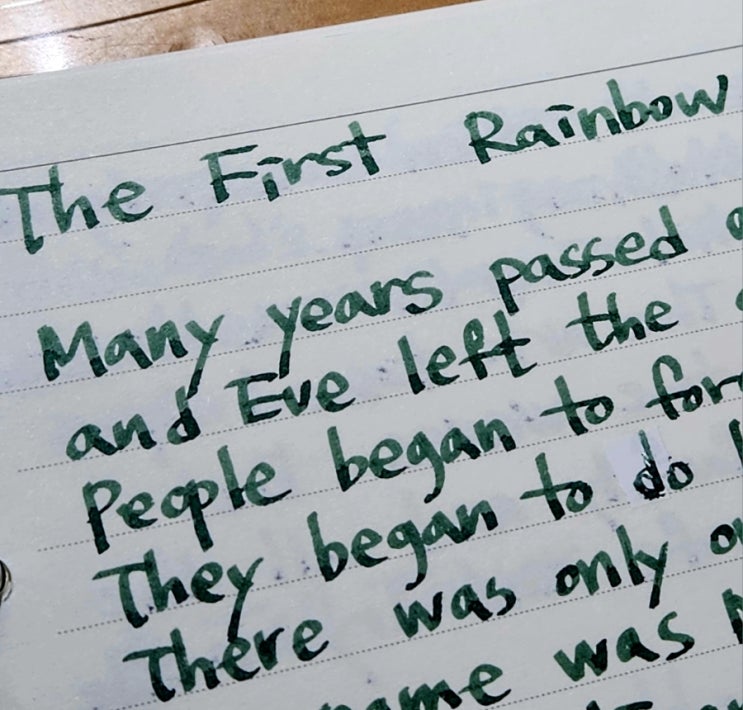 The First Rainbow
Many years passed
and Eve left the
People began to
They began to do
There was only
name was